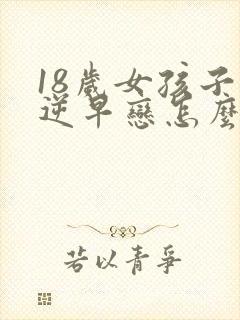 18歲女孩子
逆早戀怎麼
若以青爭